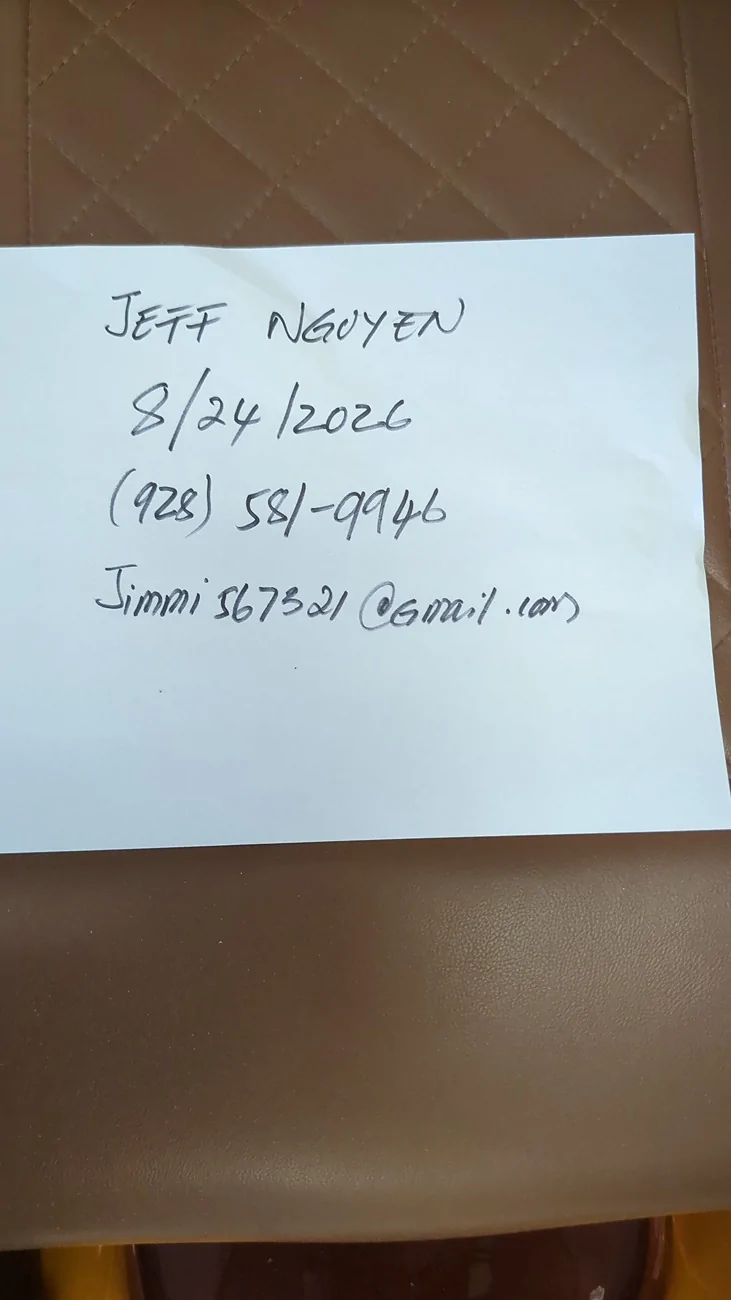 JEFF NGUYEN
8/24/2026
(928) 581-9946
Jimmi567321@Gmail.com